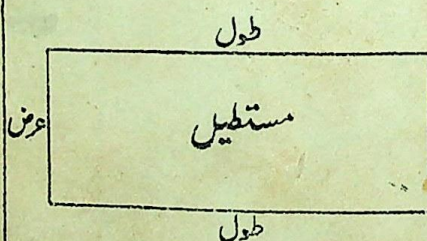 طول
عرض
مستطیل
طول